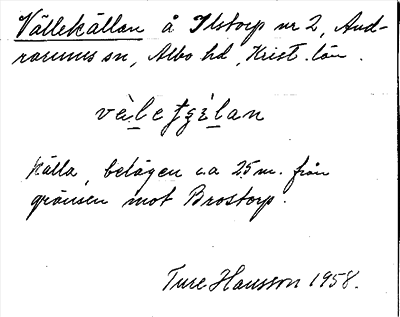 Vällekällan å Ilstorp nr 2, And-
rarums sn, Albo hd, Krist. län.
Källa, belägen c:a 25 m. från
gränsen mot Brostorp.
Ture Hansson 1958.